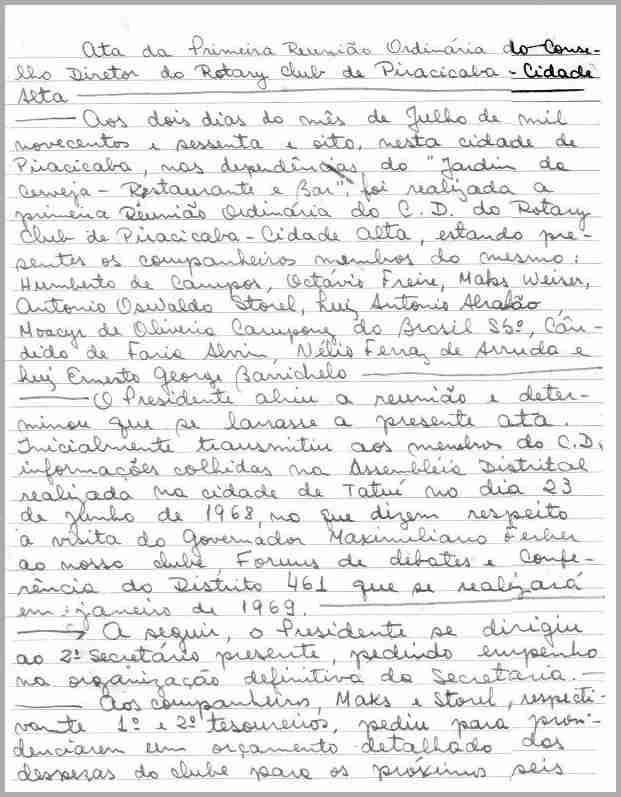 Ata da Primeira Reunião Ordinária do Conse-
lho Diretor do Rotary Club de Piracicaba - Cidade
Alta
Aos dois dias do mês de Julho de mil
novecentos e sessenta e oito, nesta cidade de
Piracicaba, nas dependências do "Jardim da
Cerveja - Restaurante e Bar", foi realizada a
primeira Reunião Ordinária do C. D. do Rotary
Club de Piracicaba - Cidade Alta, estando pre-
sentes os companheiros membros do mesmo:
Humberto de Campos, Octávio Freire, Maks Weiser,
Antonio Oswaldo Storel, Luiz Antonio Abrahão
Moacyr de Oliveira Campone do Brasil Sbº, Cân-
dido de Faria Alvim, Nélio Ferraz de Arruda e
Luiz Ernesto George Barrichelo
O Presidente abriu a reunião e deter-
minou que se lavrasse a presente ata.
Inicialmente transmitiu aos membros do C.D.
informações colhidas na Assembléia Distrital
realizada na cidade de Tatuí no dia 23
de Junho de 1968, no que dizem respeito
à visita do Governador Maximiliano Ferber
ao nosso clube, Foruns de debates e Confe-
rência do Distrito 461 que se realizará
em janeiro de 1969.
A seguir, o Presidente se dirigiu
ao 2º Secretário presente, pedindo empenho
na organização definitiva da Secretaria.
Aos companheiros, Maks e Storel, respecti-
vamte 1º e 2º tesoureiros, pediu para provi-
denciarem um orçamento detalhado das
despezas do clube para os próximos seis